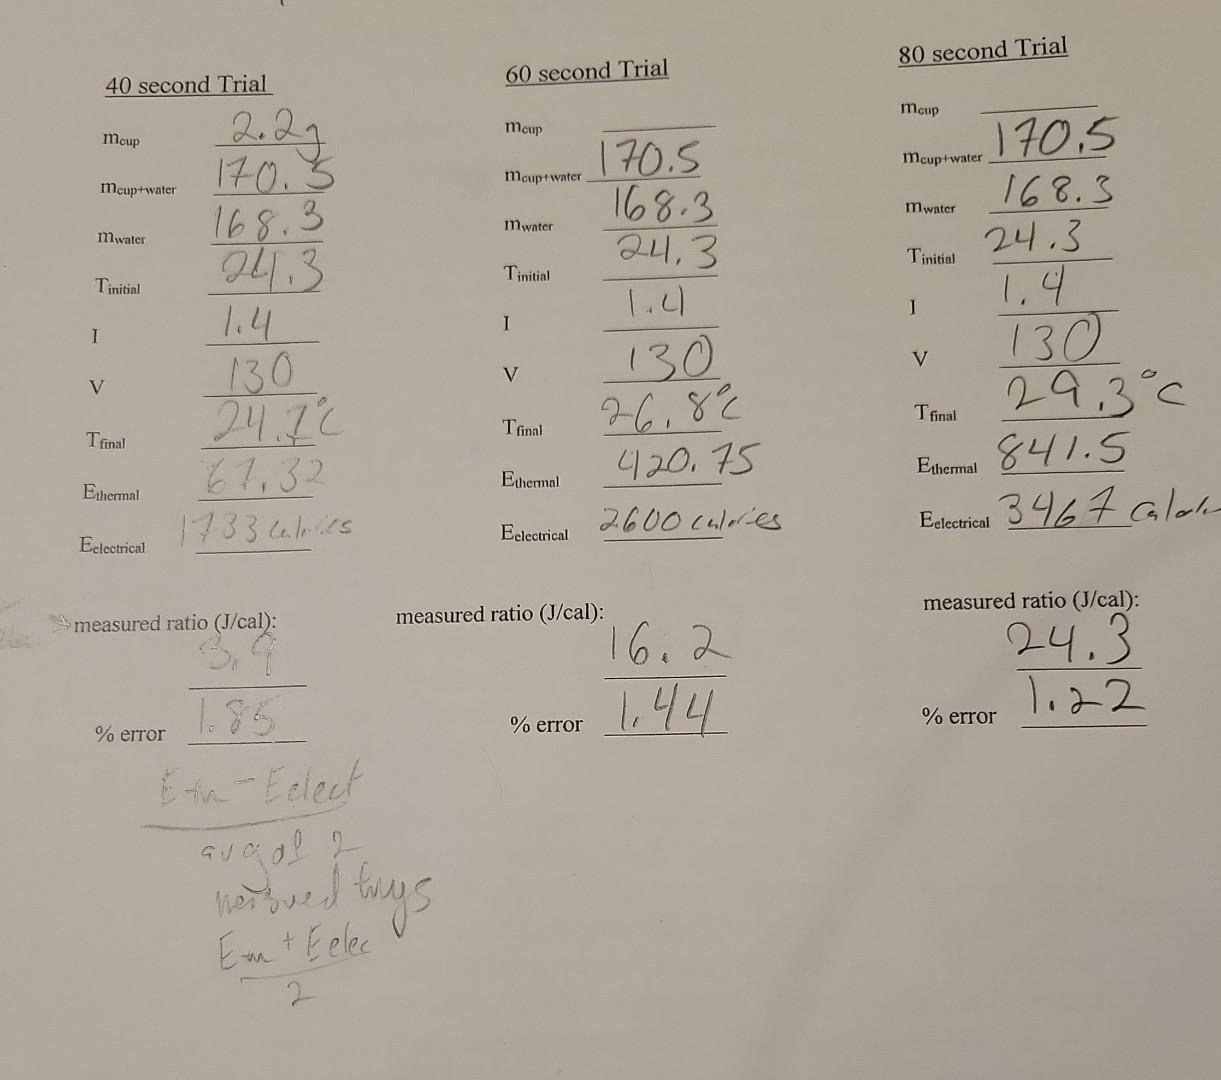 40 second Trial
mcup 2.2g
mcup+water 170.5
mwater 168.3
Tinitial 24.3
I 1.4
V 130
Tfinal 24.7°C
Ethermal 67.32
Eelectrical 1733 calories
measured ratio (J/cal):
3.9
% error 1.85
Eth - Eelect
avg of 2
Eth + Eelec
2
60 second Trial
mcup
mcup+water 170.5
mwater 168.3
Tinitial 24.3
I 1.4
V 130
Tfinal 26.8°C
Ethermal 420.75
Eelectrical 2600 calories
measured ratio (J/cal):
16.2
% error 1.44
80 second Trial
mcup
mcup+water 170.5
mwater 168.3
Tinitial 24.3
I 1.4
V 130
Tfinal 29.3°C
Ethermal 841.5
Eelectrical 3467
measured ratio (J/cal):
24.3
% error 1.22